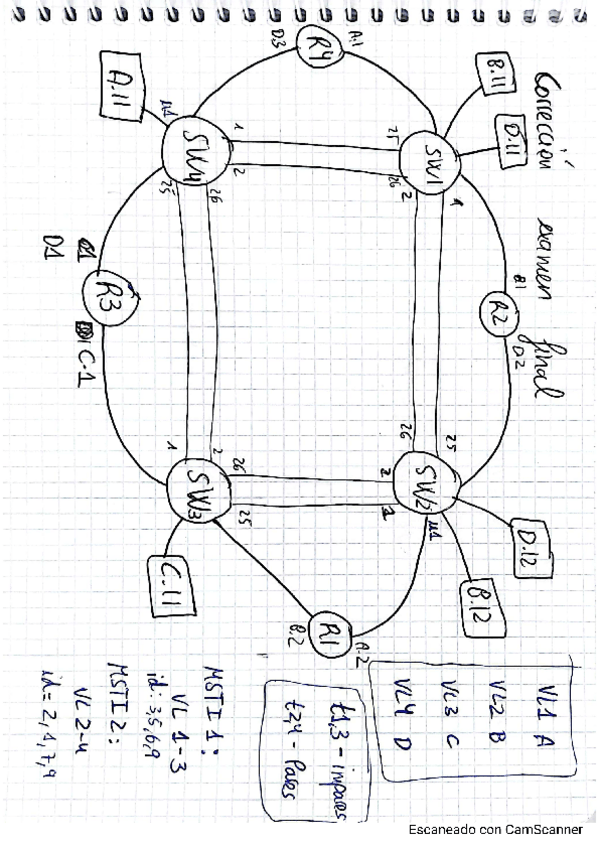 Corrección examen final
R4
A.1
D.3
B.11
D.11
A.11
SW4
SW1
1
2
25
26
2
1
25
26
R2
B1
D2
R3
D1
C-1
26
25
SW2
2
1
D.12
B.12
1
2
26
25
SW3
C.11
R1
A.2
B.2
VL1 A
VL2 B
VL3 C
VL4 D
t1,3 - impares
t2,4 - Pares
MSTI 1:
VL 1-3
id: 3,5,6,9
MSTI 2:
VL 2-4
Escaneado con CamScanner